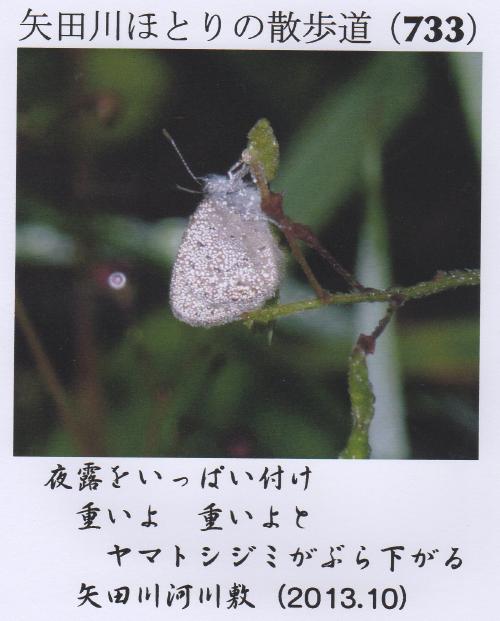 矢田川ほとりの散歩道 (733)
夜露をいっぱい付け
重いよ 重いよと
ヤマトシジミがぶら下がる
矢田川河川敷 (2013.10)